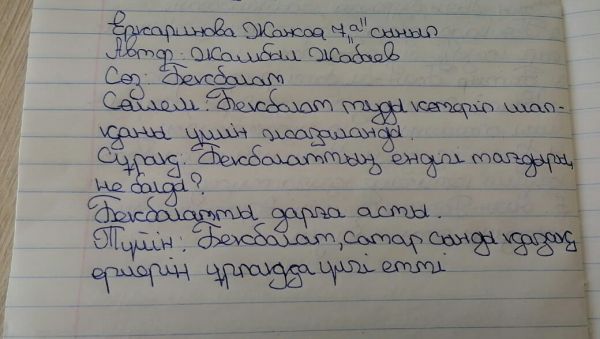 Еркаринова Жансая 7 "а" сынып
Автор: Жамбыл Жабаев
Сөз: Бекболат
Сөйлем: Бекболат туды көтеріп шап-
қаны үшін жазаланды.
Сұрақ: Бекболаттың ендігі тағдыры
не болды?
Бекболатты дарға асты.
Түйін: Бекболат, Сатар сынды қазақ
ерлерін ұрпаққа үлгі етті